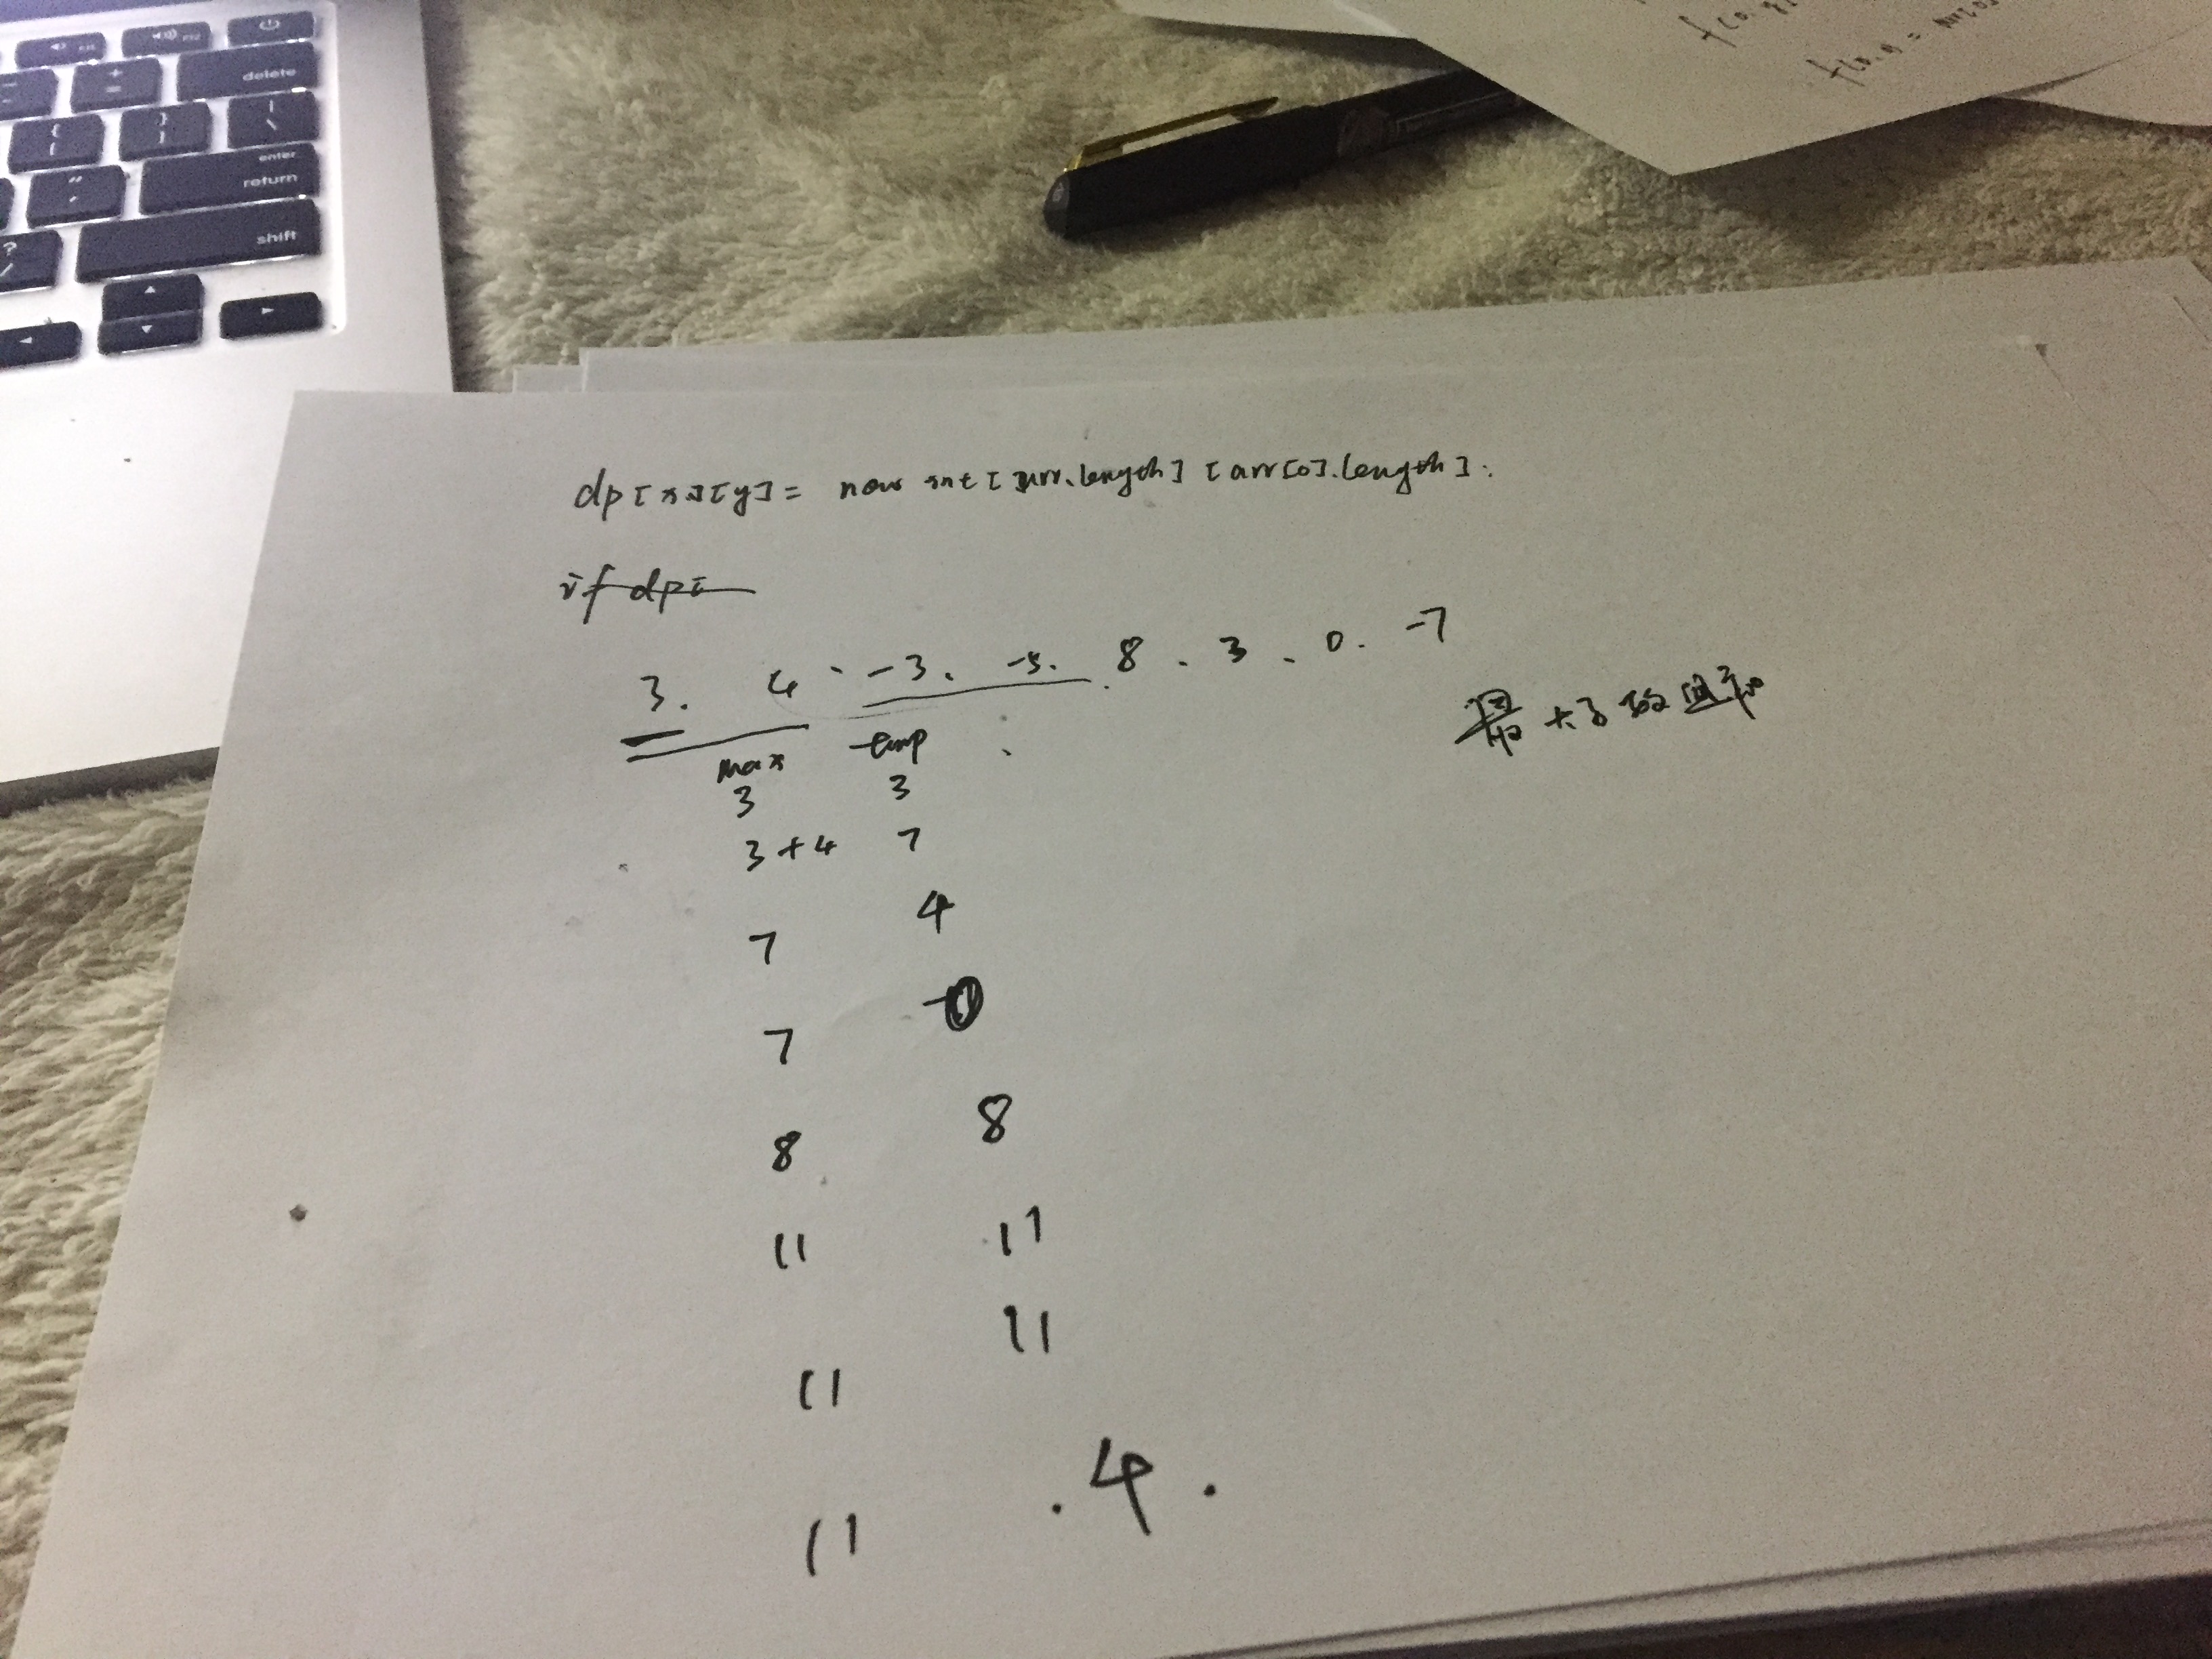 delete
enter
return
shift
dp[x][y] = new int [arr.length] [arr[0].length].
if dp[
3. 4 . -3. -5. 8 . 3 . 0 . -7
max temp
3 3
3+4 7
4
7
7
8 8
11 11
11
11
. 4 .
11